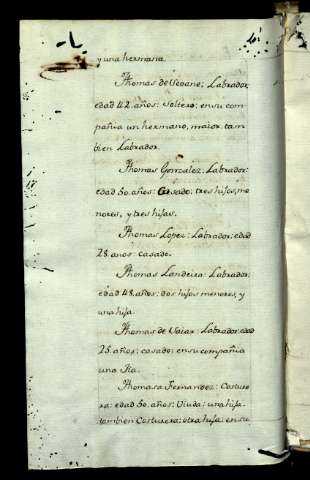 y una hermana.
Thomas de Seoane: Labrador:
edad 42. años: Soltero: en su com
pañia un hermano, maior, tam
bien Labrador.
Thomas Gonzalez: Labrador:
edad 50. años: Casado: tres hijos, me
nores, y tres hijas.
Thomas Lopez: Labrador: edad
28. anos: casado.
Thomas Landeira: Labrador:
edad 48. años: dos hijos menores, y
una hija.
Thomas de Labrador: edad
25. años: casado: en su compañia
una tia.
Thomasa Fernandez: Costure
ra: edad 50. años: Viuda: una hija
tambien Costurera: otra hija: en su